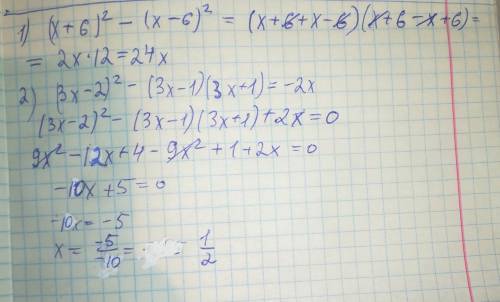 1) (x+6)² - (x-6)² = (x+6+x-6)(x+6-x+6)=
= 2x·12=24x
2) (3x-2)² - (3x-1)(3x+1)=-2x
(3x-2)² - (3x-1)(3x+1)+2x=0
9x² -12x+4 - 9x² +1+2x=0
-10x+5=0
-10x=-5
x= -5/-10 = = 1/2